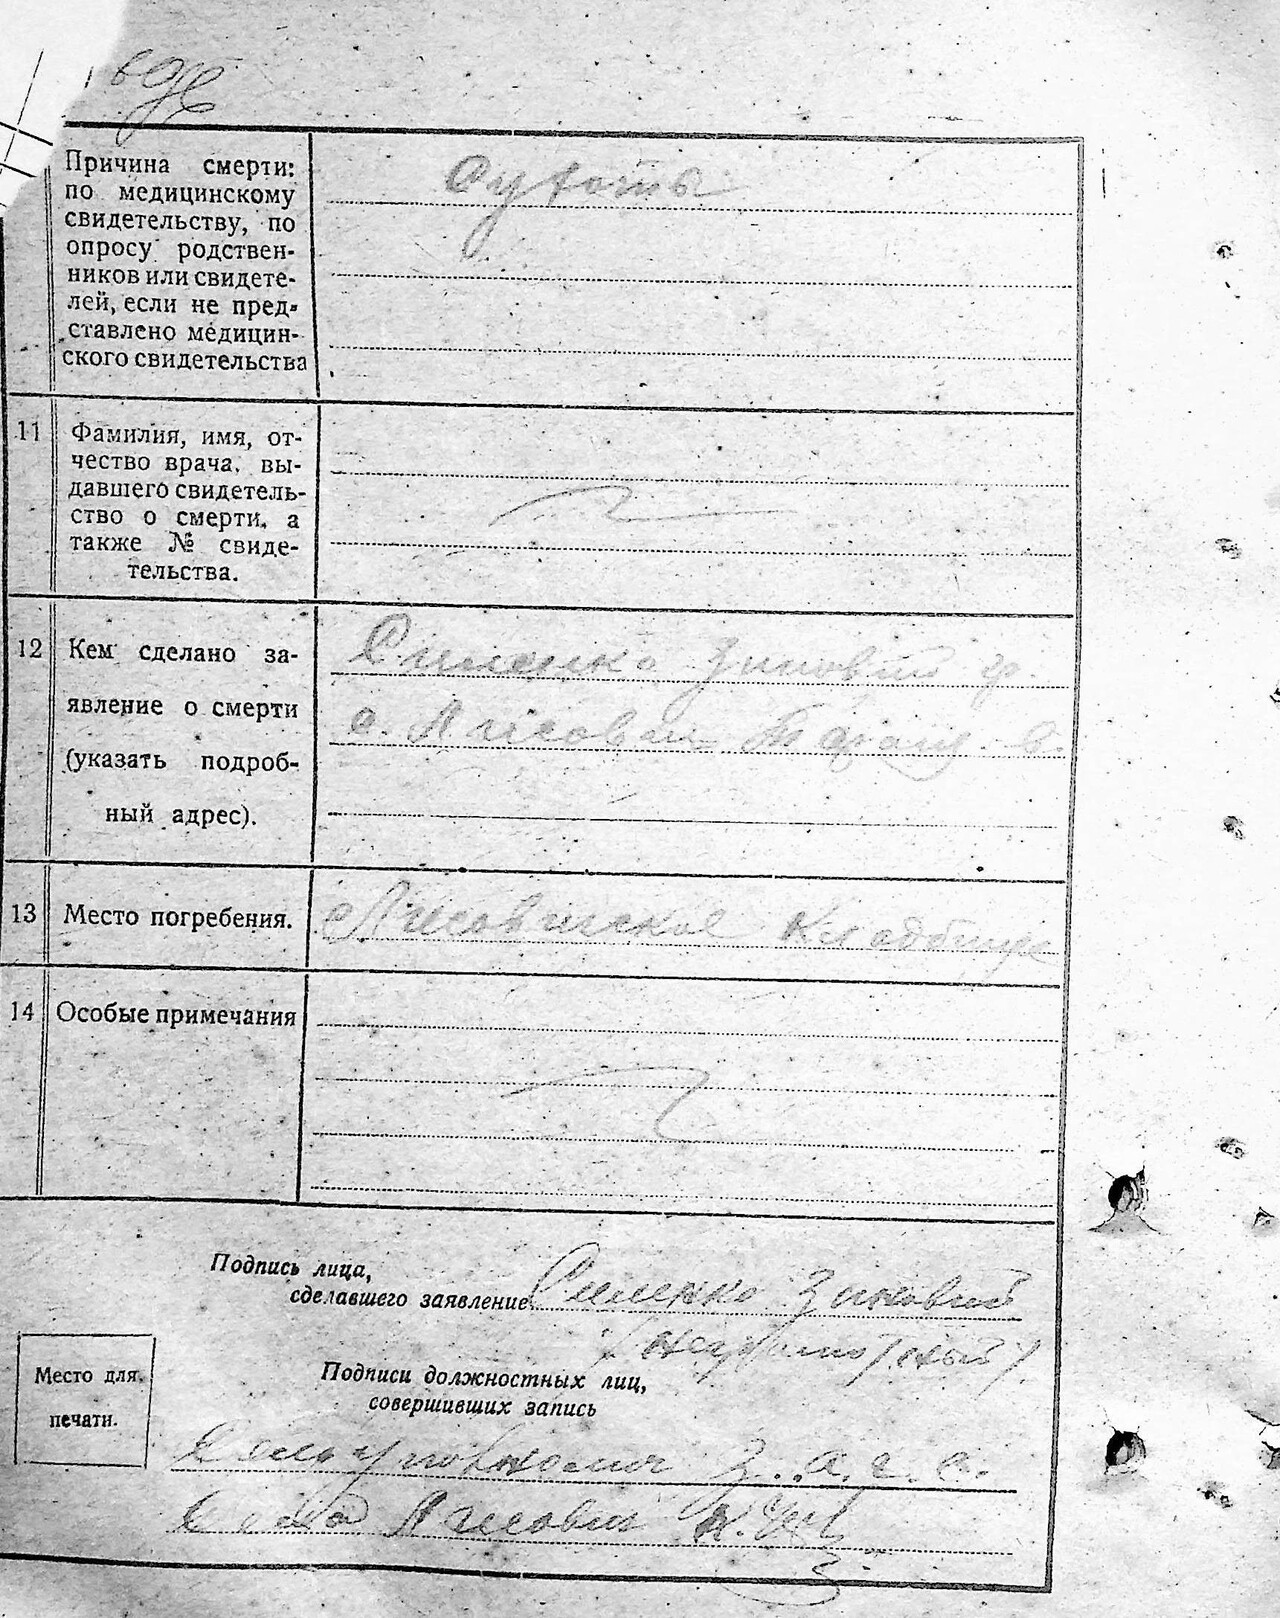 Причина смерти:
по медицинскому
свидетельству, по
опросу родствен-
ников или свидете-
лей, если не пред-
ставлено медицин-
ского свидетельства
11 Фамилия, имя, от-
чество врача, вы-
давшего свидетель-
ство о смерти, а
также № свиде-
тельства.
12 Кем сделано за-
явление о смерти
(указать подроб-
ный адрес).
Зиновий гр.
с. Лисовичи Таращ.
13 Место погребения.
Лисовичское кладбище
14 Особые примечания
Подпись лица,
сделавшего заявление Зиновий
Подписи должностных лиц,
совершивших запись
Место для
печати.
Делоуполномоч З.а.г.с.
Села Лисович